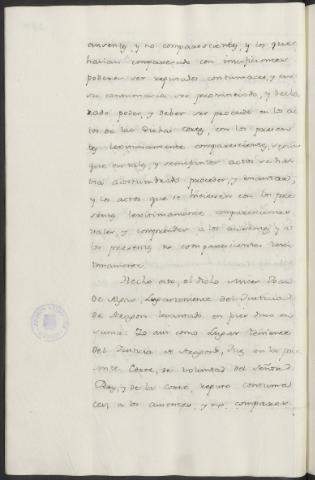 ausentes, y no comparescientes, y los que
havian comparescido con insuficientes
poderes ser reputados contumaces, y en
su contumacia ser pronunciado, y decla
rado poder, y deber ser procedido en los ac
tos de las dichas Cortes, con los presen
tes legitimamente comparescientes, segun
que en tales, y semejantes actos se ha
via acostumbrado proceder, y enantar,
y los actos que se hicieren con los pre
sentes legitimamente comparescientes
valer, y comprender a los ausentes, y a
los presentes no comparescientes legi
timamente.
Hecho esto, el dicho Micer
de Lugarteniente del Justicia
de Aragon levantado en pies dixo en
suma: Io assi como Lugar Teniente
del Justicia de Aragon, Juez en la pre
sente Corte, de voluntad del Señor
Rey, y de la Corte, reputo contuma
ces, a los ausentes, y no comparesc